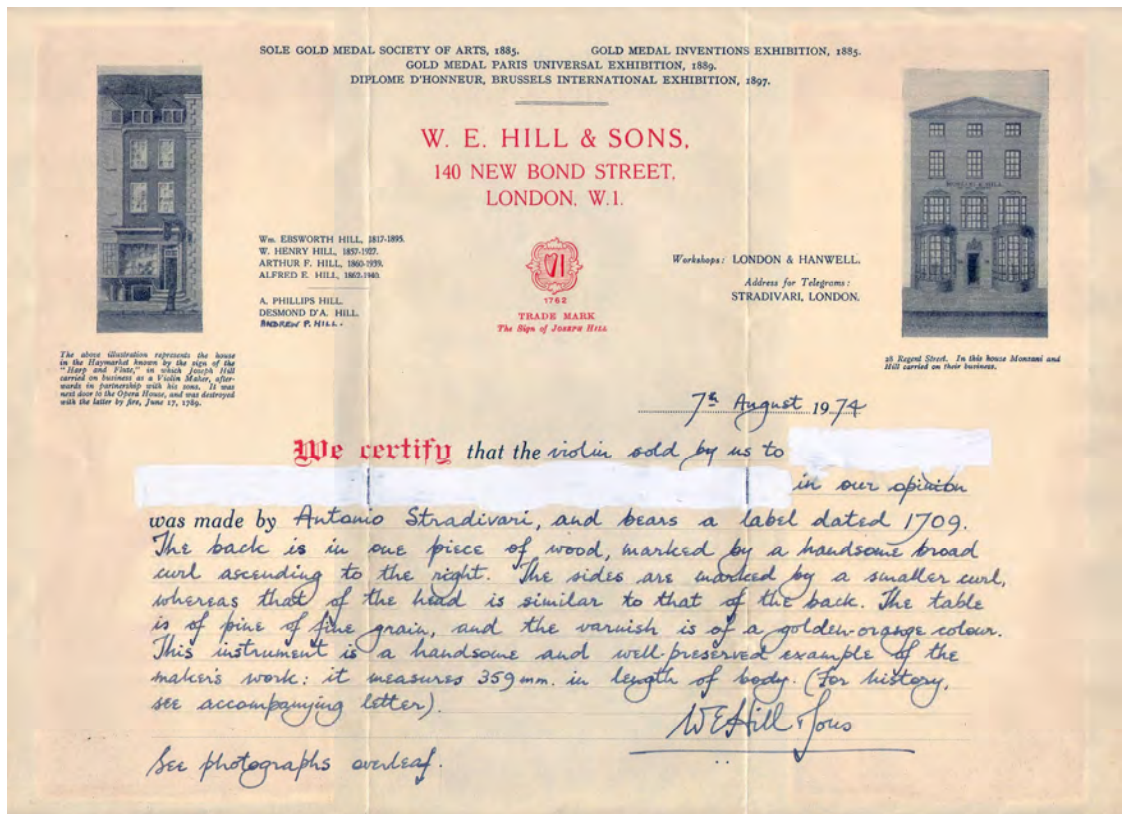 SOLE GOLD MEDAL SOCIETY OF ARTS, 1885. GOLD MEDAL INVENTIONS EXHIBITION, 1885.
GOLD MEDAL PARIS UNIVERSAL EXHIBITION, 1889.
DIPLOME D'HONNEUR, BRUSSELS INTERNATIONAL EXHIBITION, 1897.
W. E. HILL & SONS,
140 NEW BOND STREET,
LONDON, W.1.
Wm. EBSWORTH HILL, 1817-1895.
W. HENRY HILL, 1857-1927.
ARTHUR F. HILL, 1860-1939.
ALFRED E. HILL, 1862-1940.
A. PHILLIPS HILL.
DESMOND D'A. HILL.
ANDREW P. HILL.
1762
TRADE MARK
The Sign of JOSEPH HILL
Workshops: LONDON & HANWELL.
Address for Telegrams:
STRADIVARI, LONDON.
The above illustration represents the house
in the Haymarket known by the sign of the
"Harp and Flute," in which Joseph Hill
carried on business as a Violin Maker, after-
wards in partnership with his sons. It was
next door to the Opera House, and was destroyed
with the latter by fire, June 17, 1789.
MONZANI & HILL
28 Regent Street. In this house Monzani and
Hill carried on their business.
7th August 1974
We certify that the violin sold by us to
in our opinion
was made by Antonio Stradivari, and bears a label dated 1709.
The back is in one piece of wood, marked by a handsome broad
curl ascending to the right. The sides are marked by a smaller curl,
whereas that of the head is similar to that of the back. The table
is of pine of fine grain, and the varnish is of a golden-orange colour.
This instrument is a handsome and well-preserved example of the
maker's work: it measures 359 mm. in length of body. (For history,
see accompanying letter).
W E Hill & Sons
See photographs overleaf.